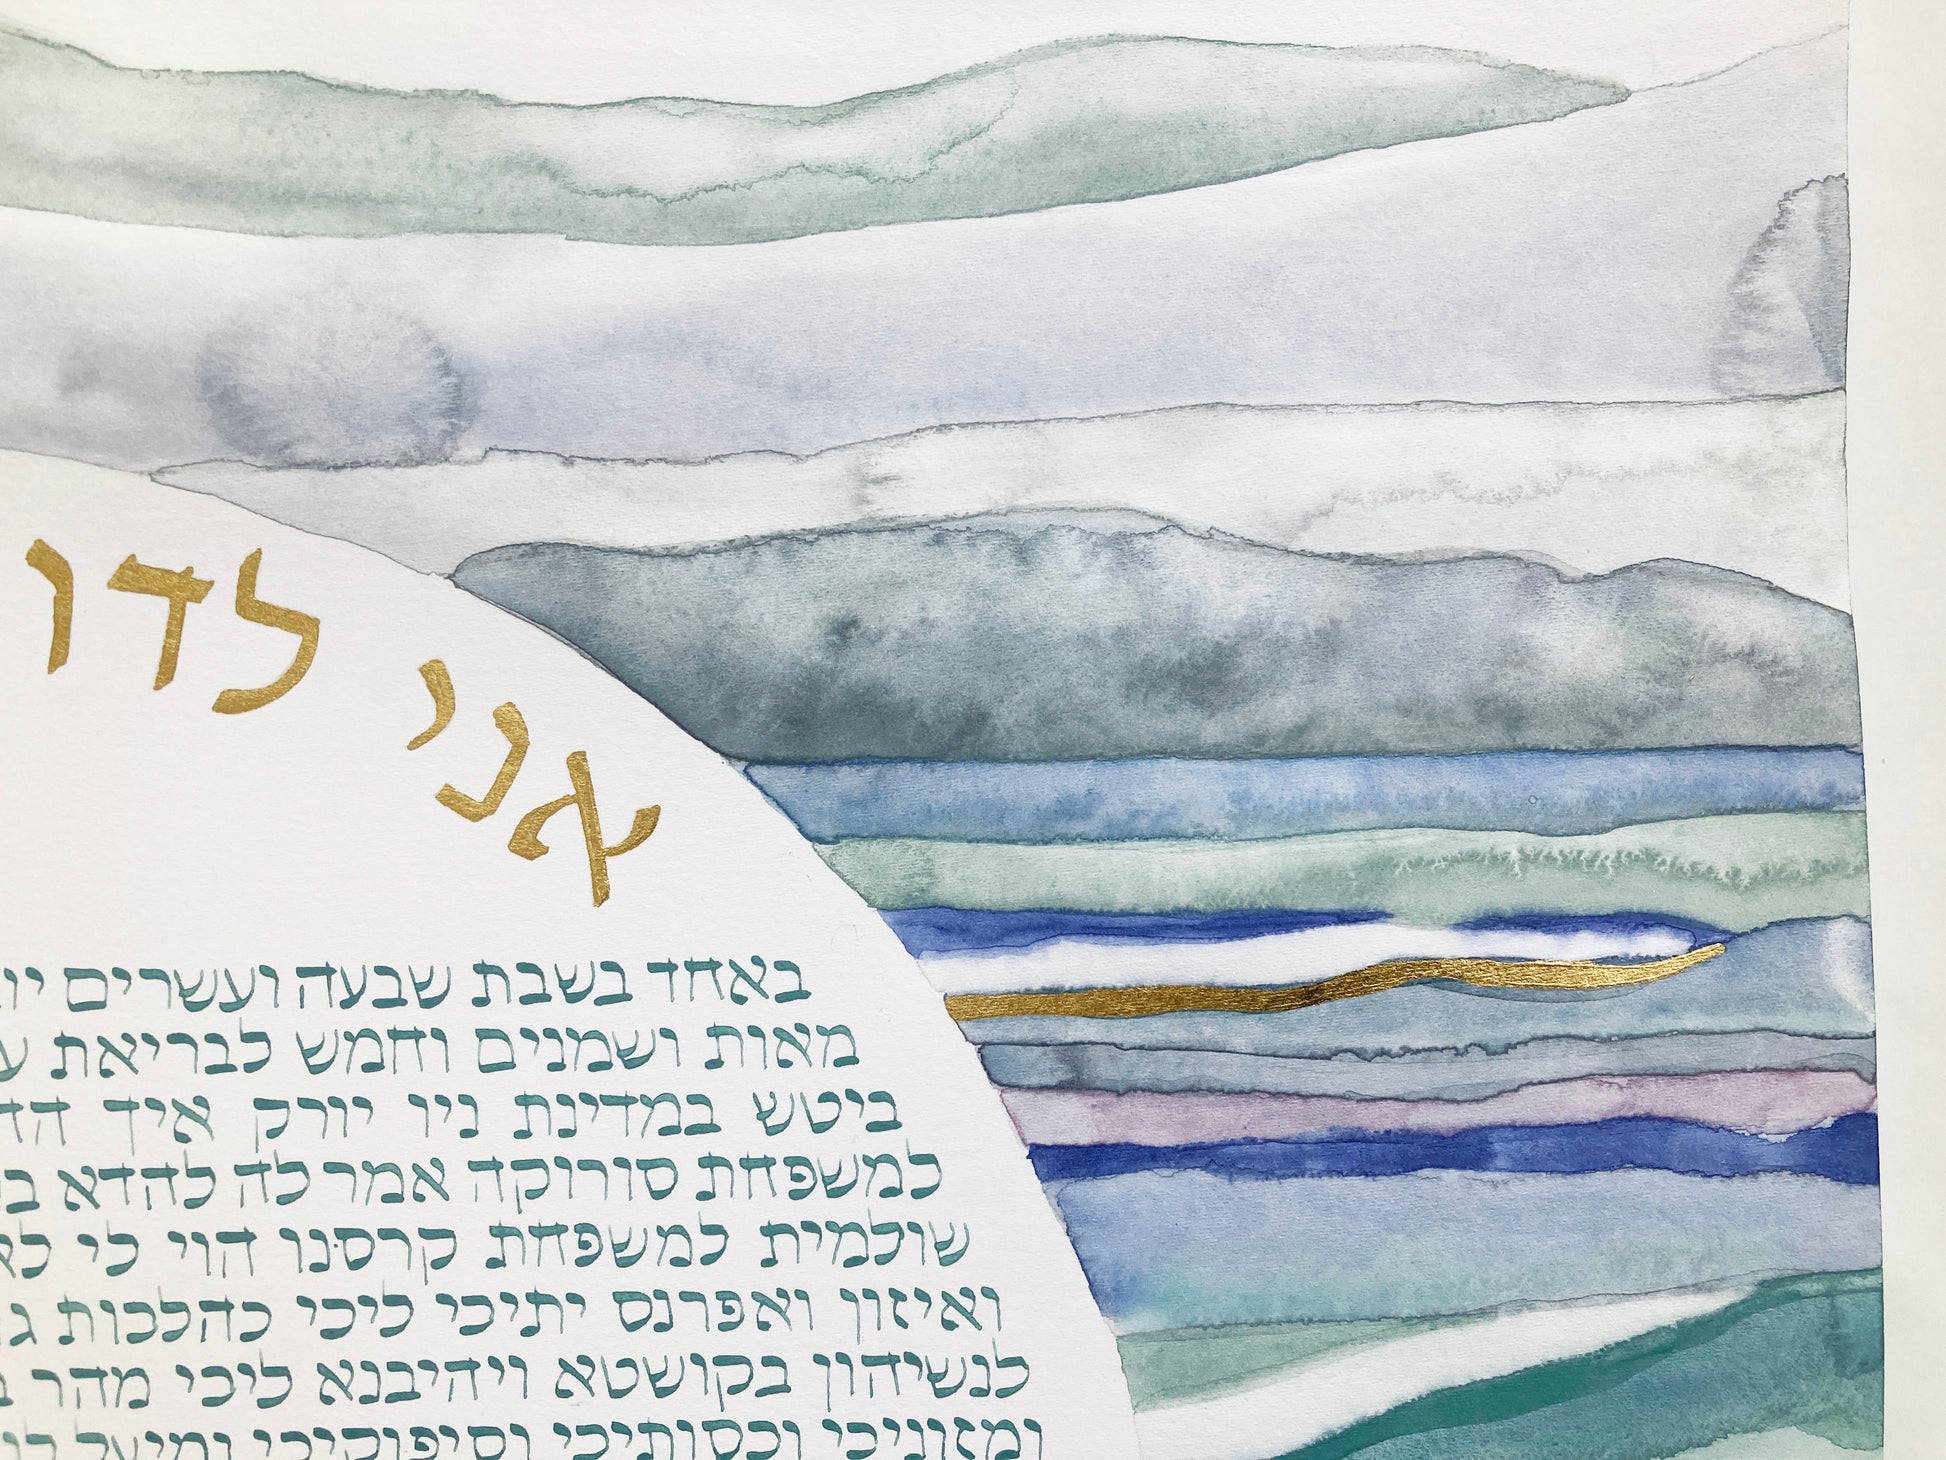 אני לדו
באחד בשבת שבעה ועשרים יו
מאות ושמנים וחמש לבריאת
ביטש במדינת ניו יורק איך הד
למשפחת סורוקה אמר לה להדא
שולמית למשפחת קרסנו הוי לי לא
ואיזון ואפרנס יתיכי ליכי כהלכות
לנשיהון בקושטא ויהיבנא ליכי מהר
ומזוניכי וכסותיכי וסיפוקיכי ומיעל